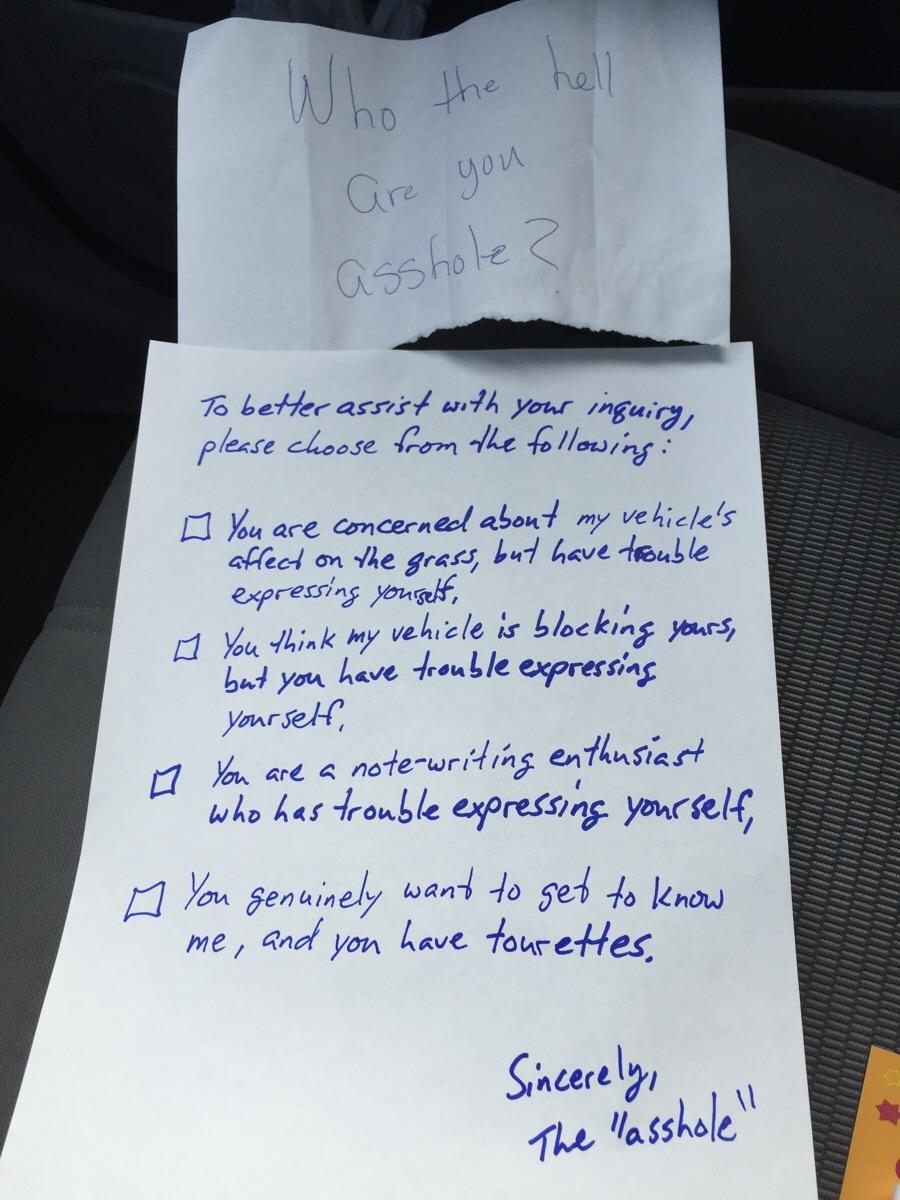 Who the hell
are you
asshole?
To better assist with your inquiry,
please choose from the following:
You are concerned about my vehicle's
affect on the grass, but have trouble
expressing yourself.
You think my vehicle is blocking yours,
but you have trouble expressing
yourself.
You are a note-writing enthusiast
who has trouble expressing yourself,
You genuinely want to get to know
me, and you have tourettes.
Sincerely,
The "asshole"